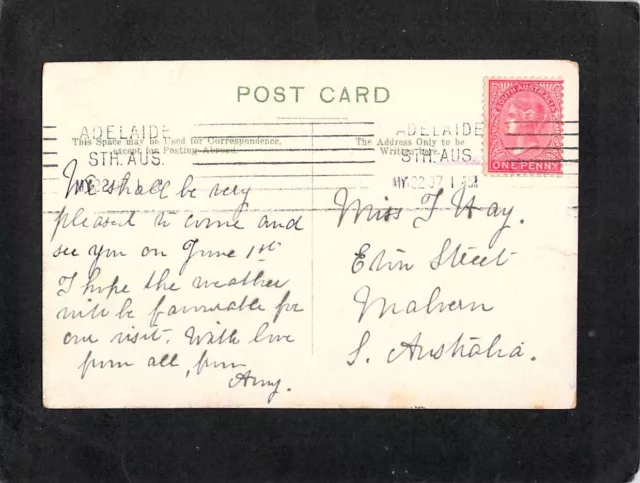 POST CARD
SOUTH AUSTRALIA
ONE PENNY
ADELAIDE
STH. AUS.
MY 22
ADELAIDE
STH. AUS.
MY 22 07 1
This Space may be Used for Correspondence,
except for Posting Abroad.
The Address Only to be
Written here.
We shall be very
pleased to come and
see you on June 1st
I hope the weather
will be favourable for
our visit. With love
from all, from
Amy.
Miss F Hay.
Street
Malvern
S. Australia.